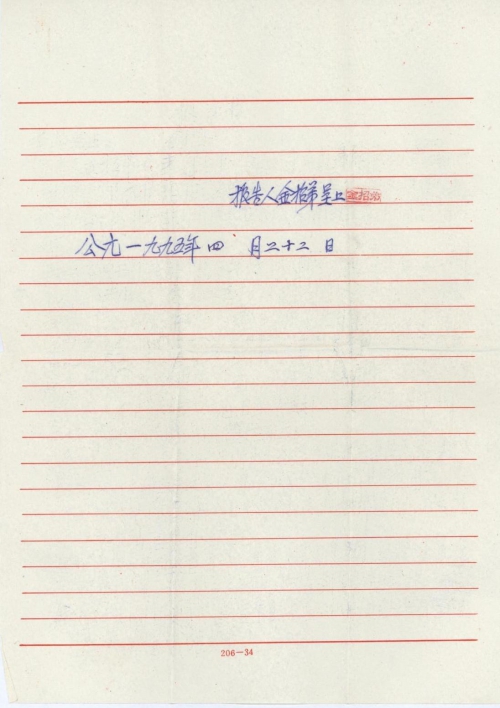 报告人金招弟呈上 金招弟
公元一九九五年四月二十二日
206—34